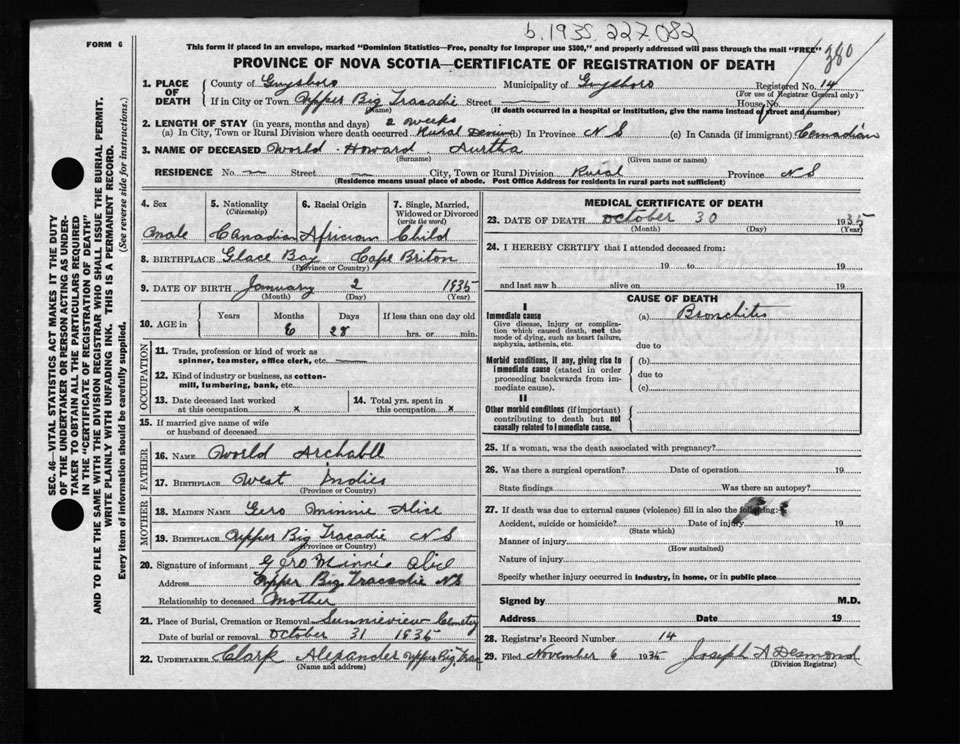 b.1935.227.082
380
FORM 6
This form if placed in an envelope, marked "Dominion Statistics—Free, penalty for improper use $300," and properly addressed will pass through the mail "FREE"
PROVINCE OF NOVA SCOTIA—CERTIFICATE OF REGISTRATION OF DEATH
1. PLACE OF DEATH County of Guysboro Municipality of Guysboro Registered No. 14
(For use of Registrar General only)
If in City or Town Upper Big Tracadie Street — House No.
(Name) (If death occurred in a hospital or institution, give the name instead of street and number)
2. LENGTH OF STAY (in years, months and days) 2 weeks
(a) In City, Town or Rural Division where death occurred Rural (b) In Province N S (c) In Canada (if immigrant) Canadian
3. NAME OF DECEASED World Howard Aurtha
(Surname) (Given name or names)
RESIDENCE No. — Street — City, Town or Rural Division Rural Province N S
(Residence means usual place of abode. Post Office Address for residents in rural parts not sufficient)
4. Sex 5. Nationality (Citizenship) 6. Racial Origin 7. Single, Married, Widowed or Divorced (write the word)
Male Canadian African Child
8. BIRTHPLACE Glace Bay Cape Briton
(Province or Country)
9. DATE OF BIRTH January 2 1935
(Month) (Day) (Year)
10. AGE in Years Months Days If less than one day old
28 hrs. or min.
OCCUPATION
11. Trade, profession or kind of work as spinner, teamster, office clerk, etc. —
12. Kind of industry or business, as cotton-mill, lumbering, bank, etc.
13. Date deceased last worked at this occupation x 14. Total yrs. spent in this occupation x
15. If married give name of wife or husband of deceased
FATHER
16. NAME World Archabll
17. BIRTHPLACE West Indies
(Province or Country)
MOTHER
18. MAIDEN NAME Gero Minnie Alice
19. BIRTHPLACE Upper Big Tracadie N S
(Province or Country)
20. Signature of informant Gero Minnie Alice
Address Upper Big Tracadie N S
Relationship to deceased Mother
21. Place of Burial, Cremation or Removal Sunnieview Cemetery
Date of burial or removal October 31 1935
22. UNDERTAKER Clark Alexander Upper Big Trac
(Name and address)
MEDICAL CERTIFICATE OF DEATH
23. DATE OF DEATH October 30 1935
(Month) (Day) (Year)
24. I HEREBY CERTIFY that I attended deceased from:
19 to 19
and last saw h alive on 19
CAUSE OF DEATH
I
Immediate cause (a) Bronchitis
Give disease, injury or complication which caused death, not the mode of dying, such as heart failure, asphyxia, asthenia, etc.
due to
Morbid conditions, if any, giving rise to immediate cause (stated in order proceeding backwards from immediate cause).
(b)
due to
(c)
II
Other morbid conditions (if important) contributing to death but not causally related to immediate cause.
25. If a woman, was the death associated with pregnancy?
26. Was there a surgical operation? Date of operation 19
State findings Was there an autopsy?
27. If death was due to external causes (violence) fill in also the following:
Accident, suicide or homicide? Date of injury 19
(State which)
Manner of injury
(How sustained)
Nature of injury
Specify whether injury occurred in industry, in home, or in public place
Signed by M.D.
Address Date 19
28. Registrar's Record Number 14
29. Filed November 6 1935 Joseph A Desmond
(Division Registrar)
SEC. 46—VITAL STATISTICS ACT MAKES IT THE DUTY
OF THE UNDERTAKER OR PERSON ACTING AS UNDER-
TAKER TO OBTAIN ALL THE PARTICULARS REQUIRED
IN THE "CERTIFICATE OF REGISTRATION OF DEATH"
AND TO FILE THE SAME WITH THE DIVISION REGISTRAR WHO SHALL ISSUE THE BURIAL PERMIT.
WRITE PLAINLY WITH UNFADING INK. THIS IS A PERMANENT RECORD.
Every item of information should be carefully supplied. (See reverse side for instructions.)